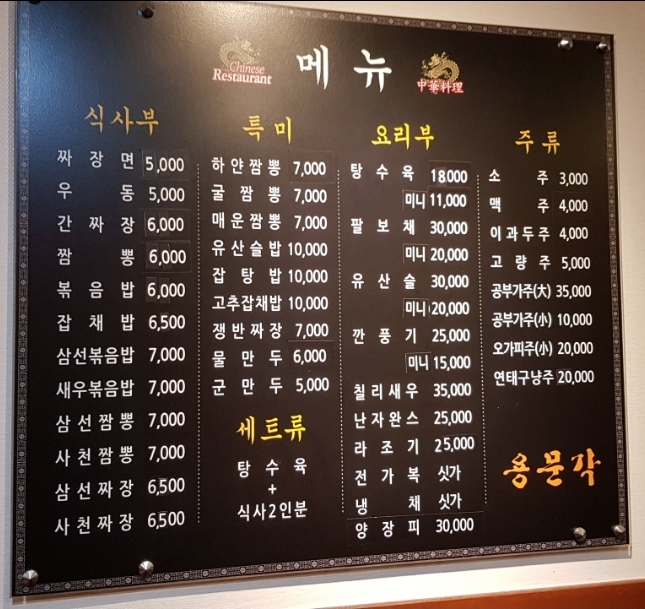 Chinese
Restaurant
메뉴
中華料理
식사부
짜장면 5,000
우동 5,000
간짜장 6,000
짬뽕 6,000
볶음밥 6,000
잡채밥 6,500
삼선볶음밥 7,000
새우볶음밥 7,000
삼선짬뽕 7,000
사천짬뽕 7,000
삼선짜장 6,500
사천짜장 6,500
특미
하얀짬뽕 7,000
굴짬뽕 7,000
매운짬뽕 7,000
유산슬밥 10,000
잡탕밥 10,000
고추잡채밥 10,000
쟁반짜장 7,000
물만두 6,000
군만두 5,000
세트류
탕수육
+
식사2인분
요리부
탕수육 18,000
미니 11,000
팔보채 30,000
미니 20,000
유산슬 30,000
미니 20,000
깐풍기 25,000
미니 15,000
칠리새우 35,000
난자완스 25,000
라조기 25,000
전가복 싯가
냉채 싯가
양장피 30,000
주류
소주 3,000
맥주 4,000
이과두주 4,000
고량주 5,000
공부가주(大) 35,000
공부가주(小) 10,000
오가피주(小) 20,000
연태구냥주 20,000
용문각